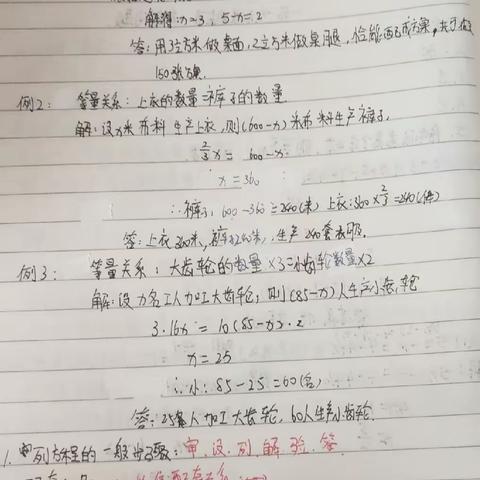 解得:x=3, 5-x=2
答:用3立方米做桌面,2立方米做桌腿,恰能配成方桌,共可做
150张方桌.
例2: 等量关系:上衣的数量=裤子的数量
解:设x米布料生产上衣,则(600-x)米布料生产裤子.
2/3x= 600-x
x=360
∴裤子: 600-360=240(米) 上衣:360×2/3=240(件)
答:上衣360米,裤子240米,生产240套衣服.
例3: 等量关系:大齿轮的数量×3=小齿轮数量×2
解:设x名工人加工大齿轮,则(85-x)人生产小齿轮
3·16x=10(85-x)·2
x=25
∴小:85-25=60(名)
答:25名人加工大齿轮,60人生产小齿轮.
1.列方程的一般步骤:审、设、列、解、验、答